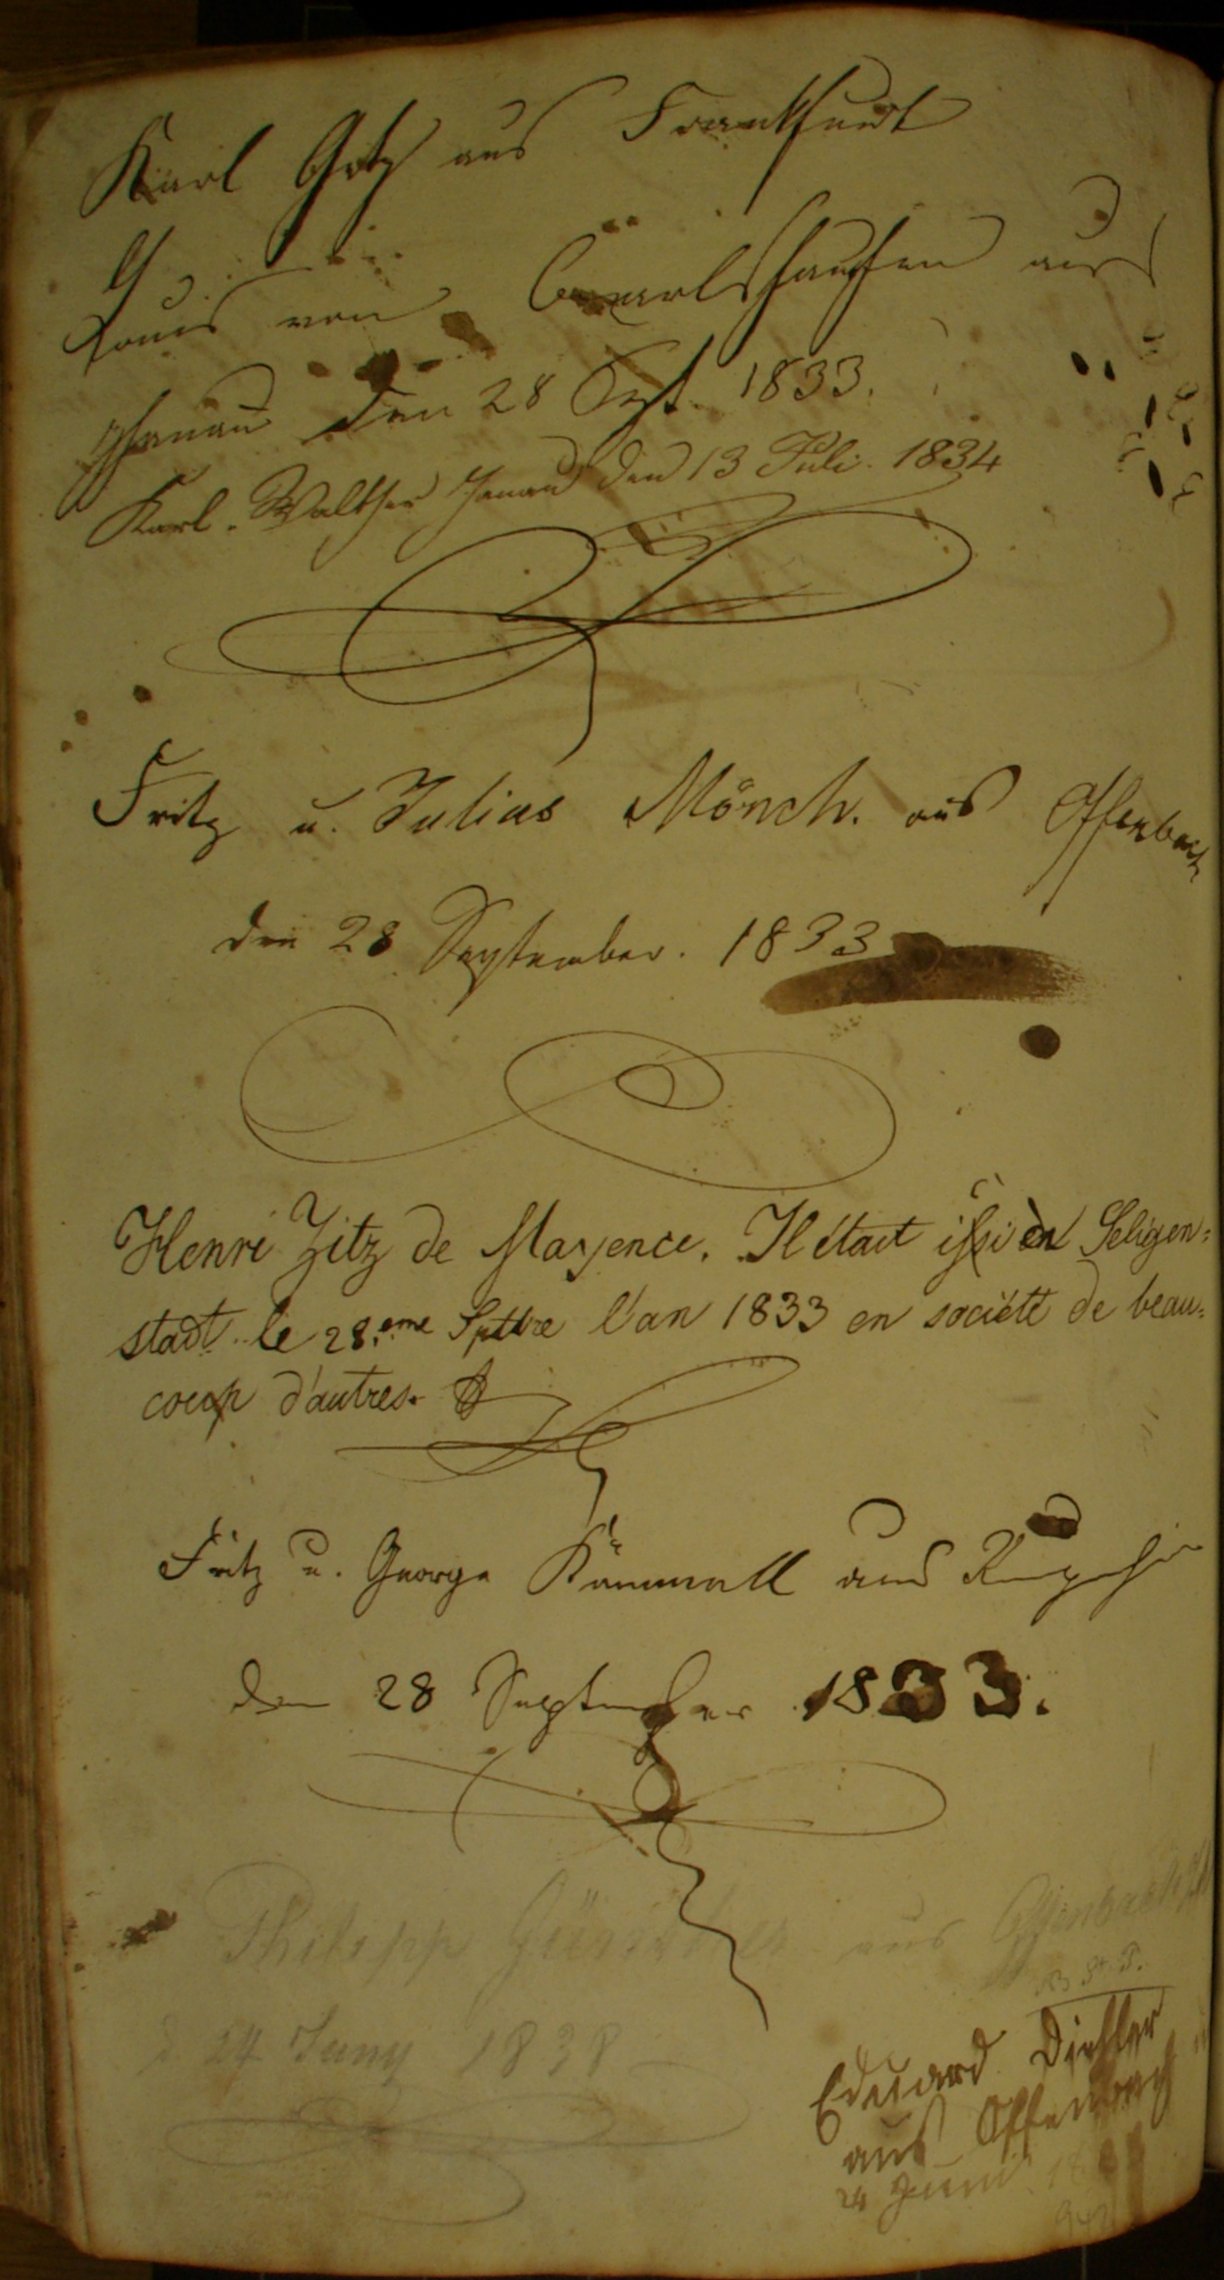 Karl Götz aus Frankfurt
Louis von Carlshausen aus
Hanau den 28 Sept. 1833.
Karl. Walther Hanau den 13 Juli. 1834
Fritz u. Julius Mönch. aus Offenbach
den 28 September. 1833
Henri Zitz de Mayence. Il était issi en Seligen:
stadt le 28.eme Sptbre l'an 1833 en société de beau:
coup d'autres.
Fritz u. George aus
den 28 September 1833.
Philipp aus Offenbach
d. 24 Juny 1838
Eduard
aus Offenbach
24 Juni